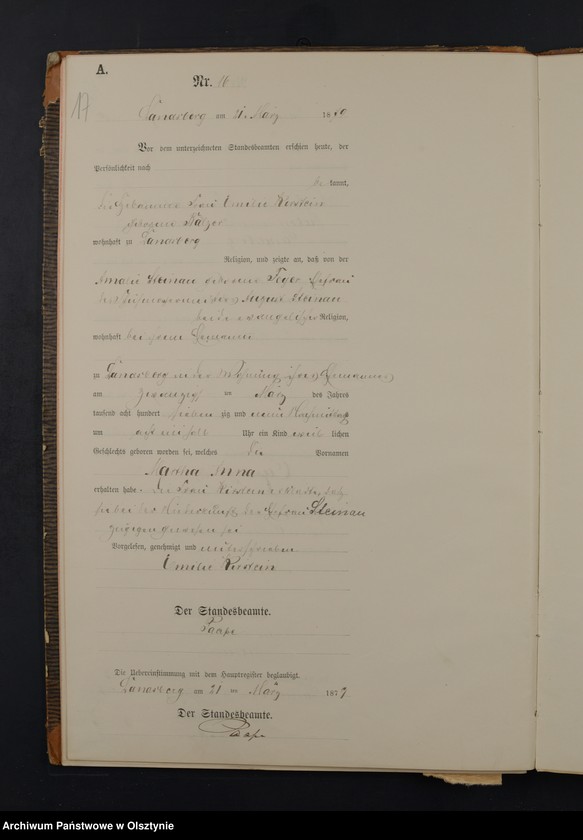 A.
17
Nr. 16
am 21. März 18
Vor dem unterzeichneten Standesbeamten erschien heute, der
Persönlichkeit nach
be kannt,
die Hebamme Frau Emilie Kirstein
geborene
wohnhaft zu
Religion, und zeigte an, daß von der
Amalie Steinau geborene Ehefrau
August Steinau
beide evangelischer Religion,
wohnhaft bei ihrem Ehemanne
zu in der Wohnung ihres Ehemannes
am zwanzigsten März des Jahres
tausend acht hundert sieben zig und neun Nachmittags
um acht einhalb Uhr ein Kind weib lichen
Geschlechts geboren worden sei, welches die Vornamen
Martha Anna
erhalten habe. Die Frau Kirstein erklärte, daß
sie bei der Niederkunft der Ehefrau Steinau
zugegen gewesen sei
Vorgelesen, genehmigt und unterschrieben
Emilie Kirstein
Der Standesbeamte.
Die Uebereinstimmung mit dem Hauptregister beglaubigt.
am 21 ten März 1879
Der Standesbeamte.
Archiwum Państwowe w Olsztynie